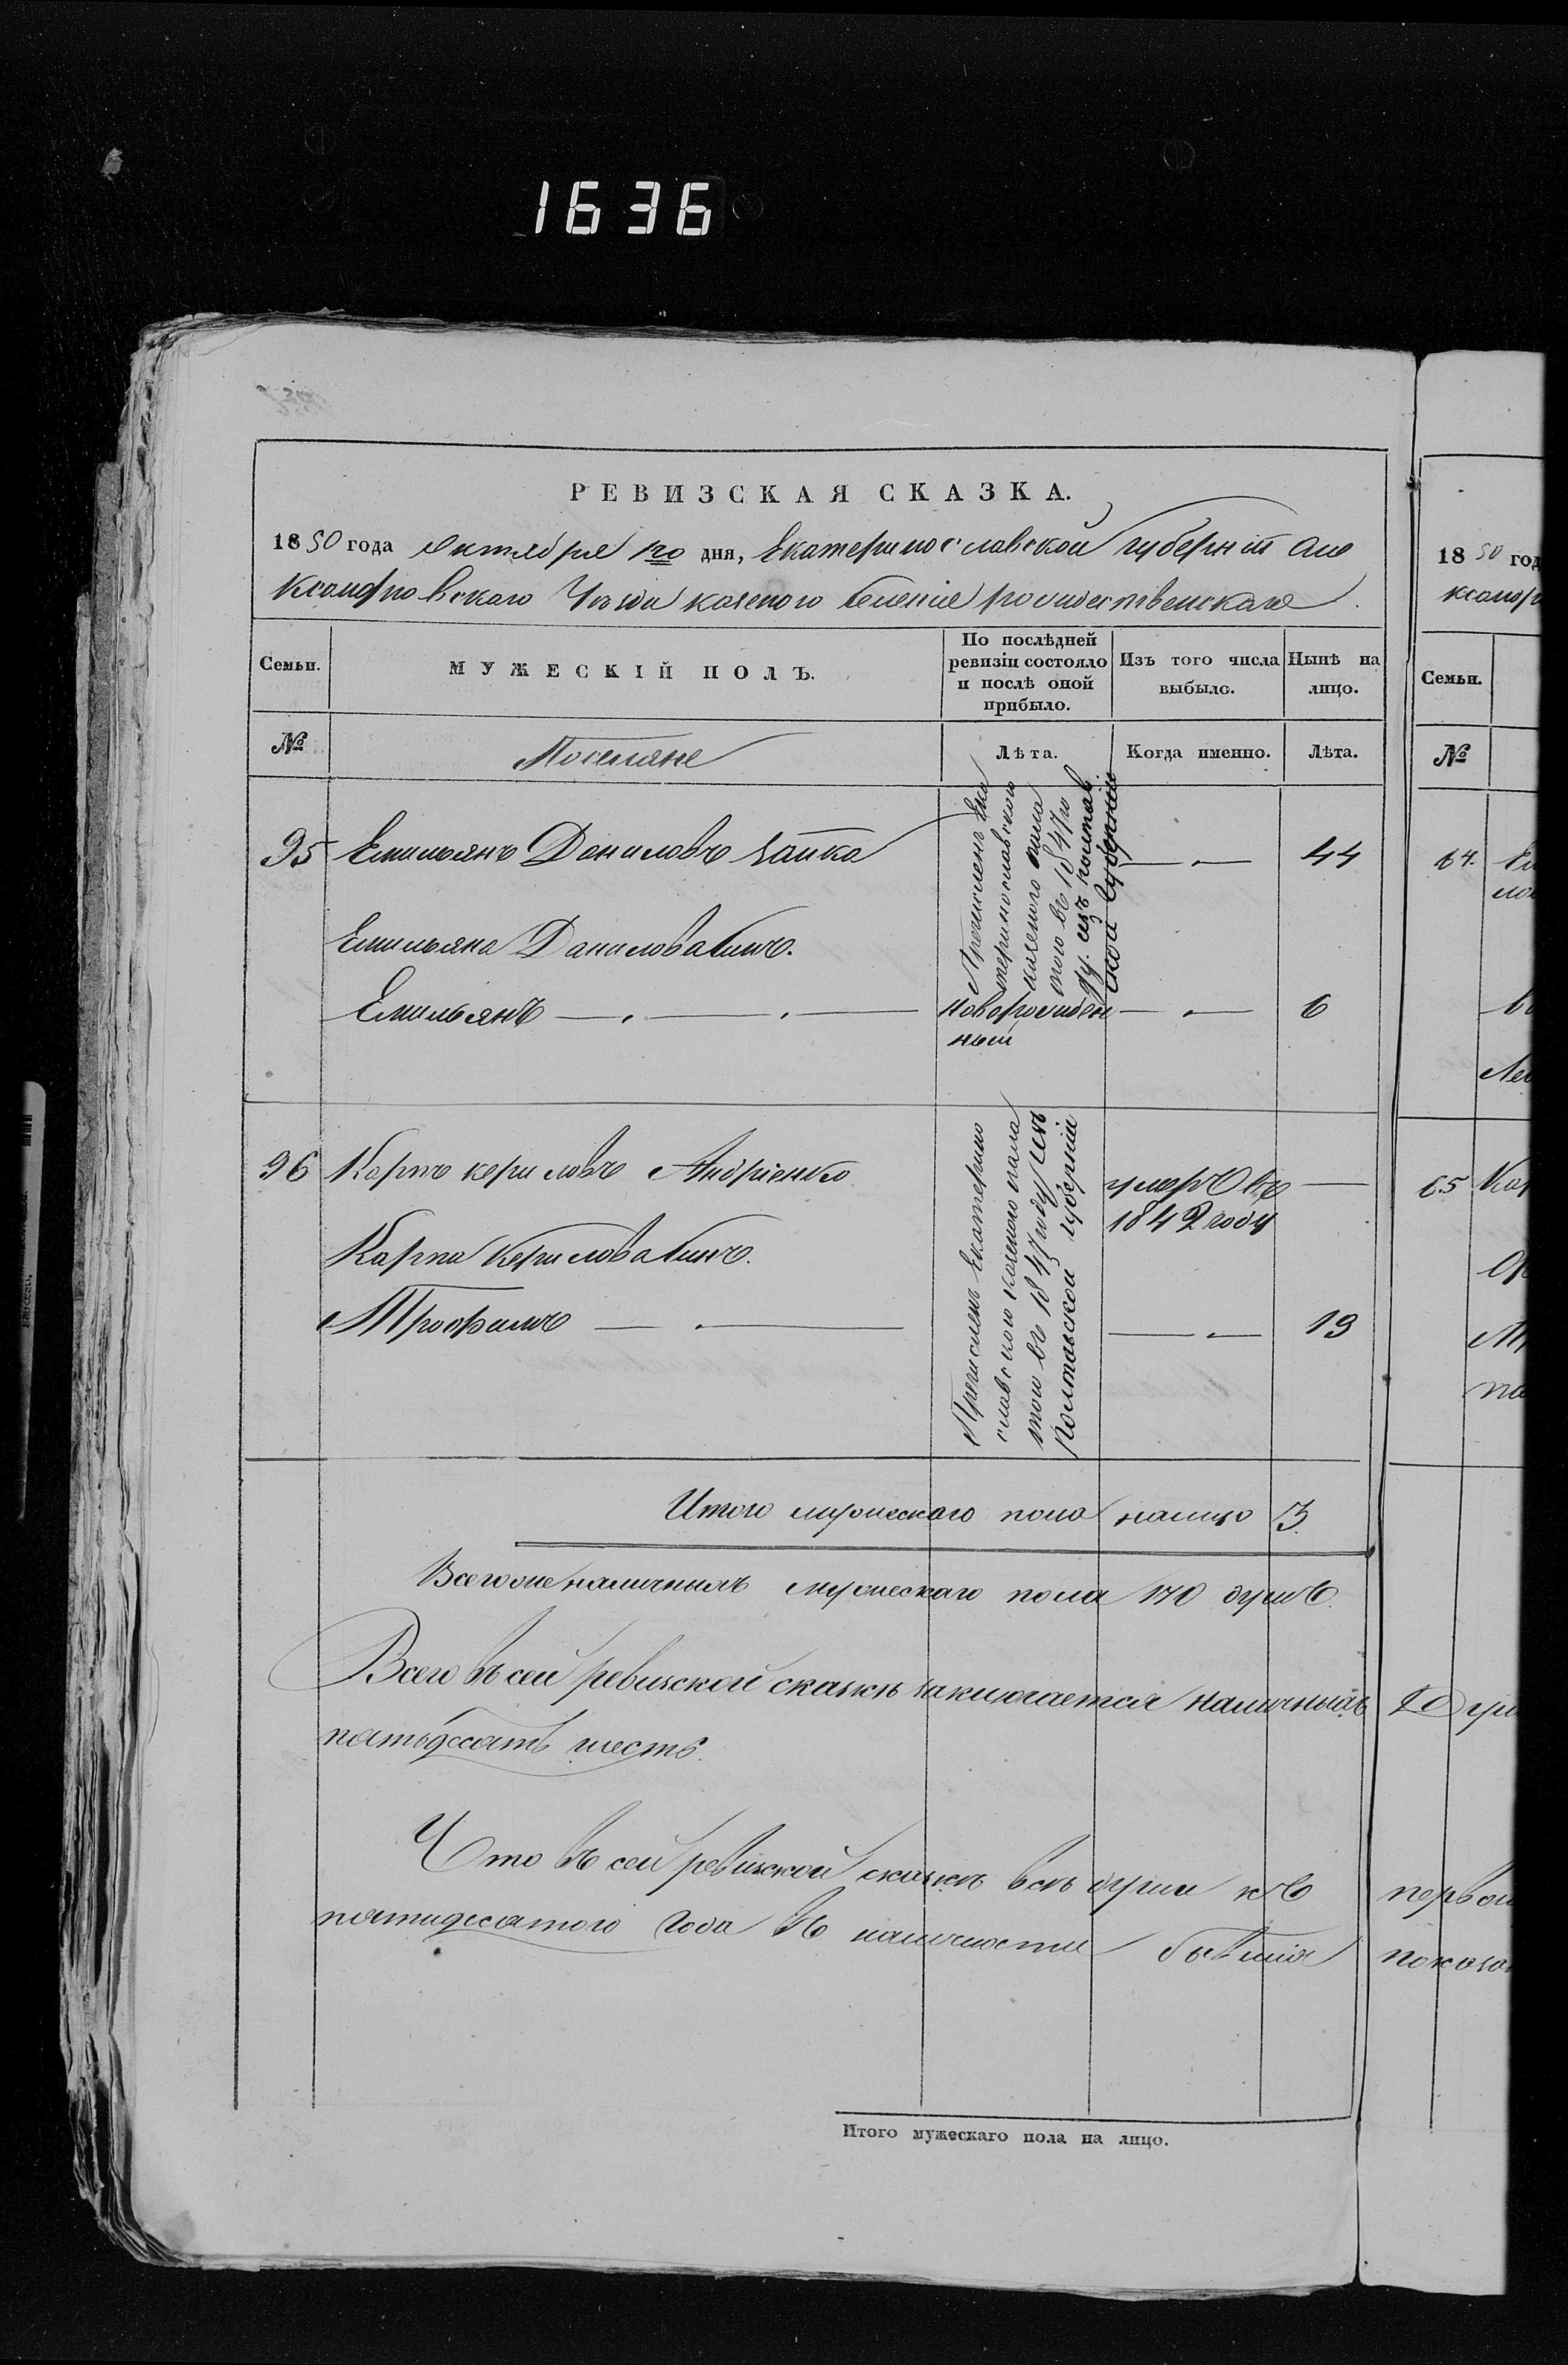 1636
РЕВИЗСКАЯ СКАЗКА.
1850 года Октября 1го дня, Екатеринославской губерніи Але
ксандровскаго Уезда казеного селенія рождественскаго
Семьи.
МУЖЕСКІЙ ПОЛЪ.
По послѣдней ревизіи состояло и послѣ оной прибыло.
Изъ того числа выбыло.
Нынѣ на лицо.
№
Поселяне
Лѣта.
Когда именно.
Лѣта.
95 Емильянъ Даниловъ заика
Причисленъ Ека
теринославского
казеного пала
тою въ 1847го
ду. изъ полтав
ской губерніи
44
Емильяна Данилова сынъ.
Емильянъ
новорожден
ный
6
96 Карпъ кериловъ Андріенко
Причисленъ Екатерино
славского казеного пала
тою въ 1847 году изъ
полтавской губерніи
умеръ въ
1842 году
Карпа керилова сынъ.
Трофимъ
19
Итого мужескаго пола налицо 3.
Всегоже наличныхъ мужескаго пола 170 душъ.
Всего въ сей ревизской сказкѣ заключается наличныхъ
пятьдесятъ шесть.
Что въ сей ревизской сказкѣ всѣ души къ
пятидесятого года въ наличности бывшія
Итого мужескаго пола на лицо.
1850 год
ксандр
Семьи.
№
64.
65
душ
первом
показа